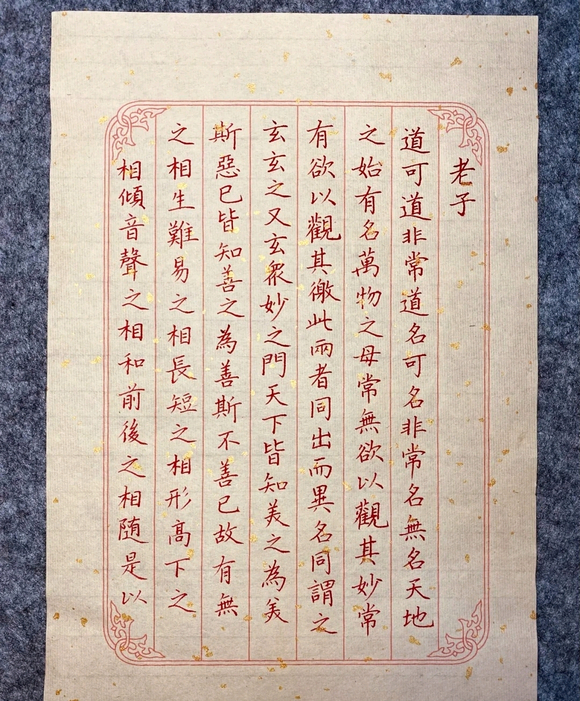 老子
道可道非常道名可名非常名無名天地
之始有名萬物之母常無欲以觀其妙常
有欲以觀其徼此兩者同出而異名同謂之
玄玄之又玄衆妙之門天下皆知美之為美
斯惡已皆知善之為善斯不善已故有無
之相生難易之相長短之相形高下之
相傾音聲之相和前後之相随是以